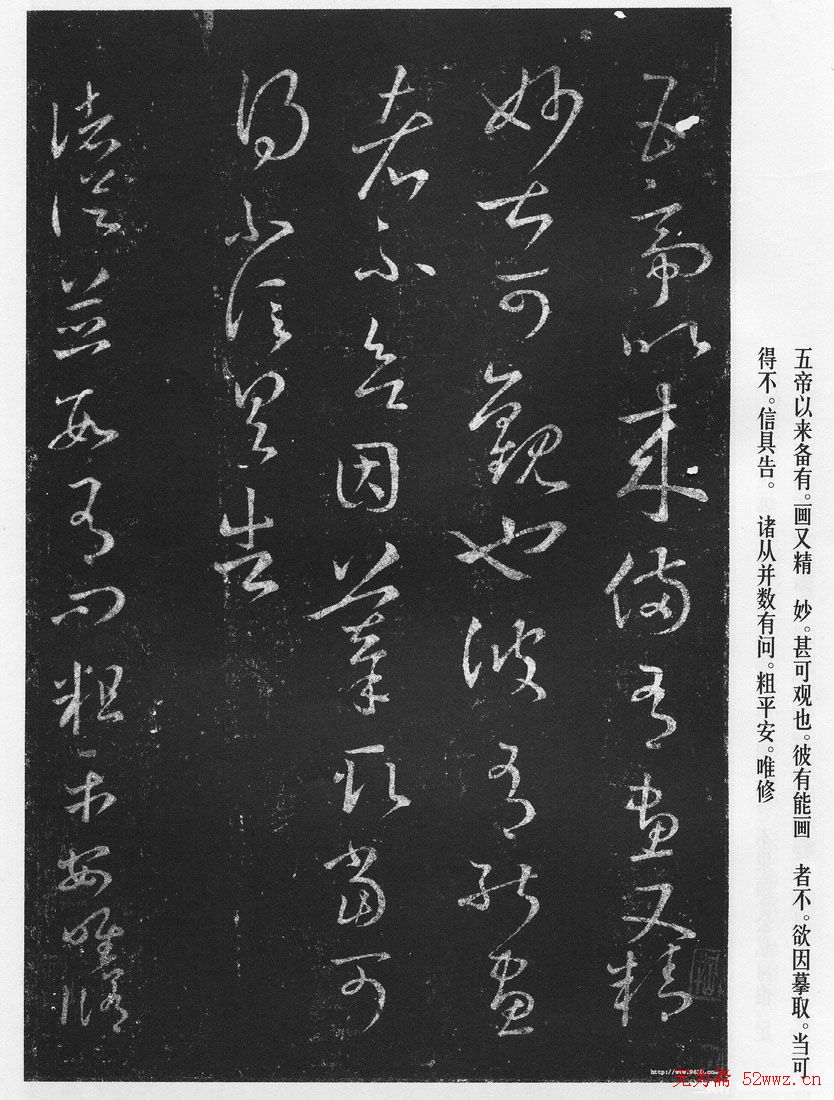 五帝以来備有畫又精
妙甚可觀也彼有能畫
者不欲因摹取當可
得不信具告
諸從並數有問粗平安唯修
五帝以来备有。画又精 妙。甚可观也。彼有能画 者不。欲因摹取。当可
得不。信具告。 诸从并数有问。粗平安。唯修
无为斋 52wwz.cn